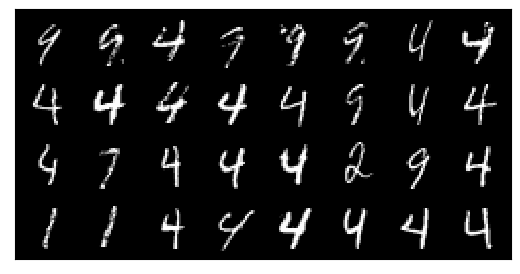 9 9 4 9 9 9 4 4
4 4 4 4 4 9 4 4
4 7 4 4 4 2 9 4
1 1 4 4 4 4 4 4